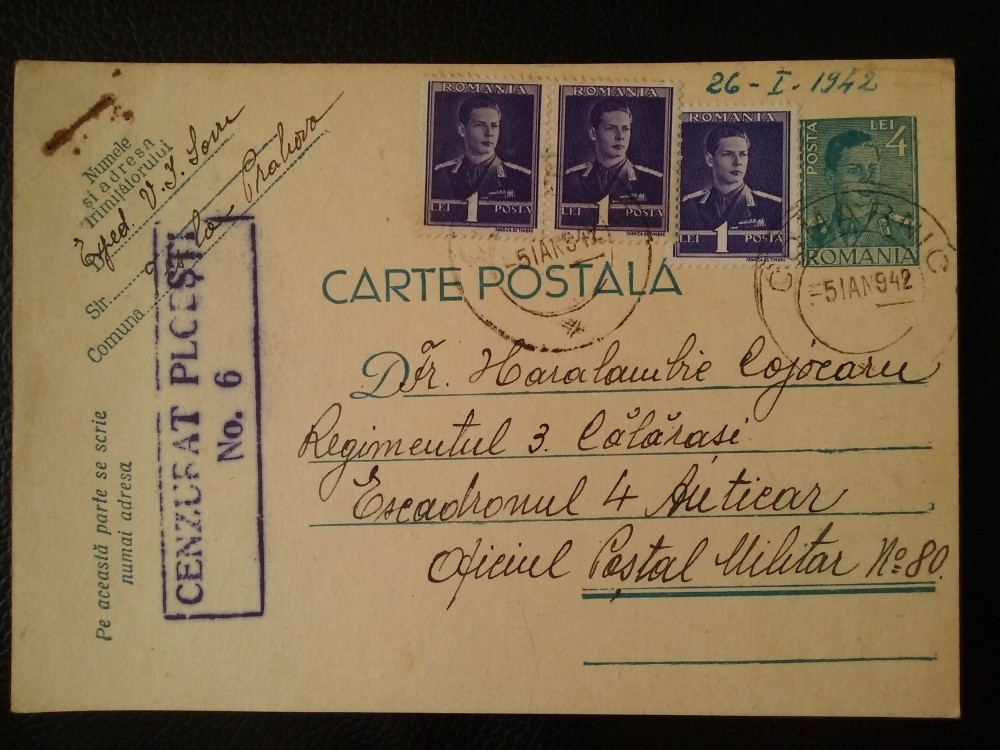 26 - I. 1942
ROMANIA
LEI 1 POSTA
ROMANIA
LEI 1 POSTA
ROMANIA
LEI 1 POSTA
POSTA LEI 4
ROMANIA
-5 IAN 942
-5 IAN 942
Numele
și adresa
trimițătorului
Exped V. I.
Str.
Comuna
Prahova
CENZURAT PLOEȘTI
No. 6
Pe această parte se scrie
numai adresa
CARTE POSTALA
D Fr. Haralambie Cojocaru
Regimentul 3. Călărași
Escadronul 4 Anticar
Oficiul Poștal Militar No 80.